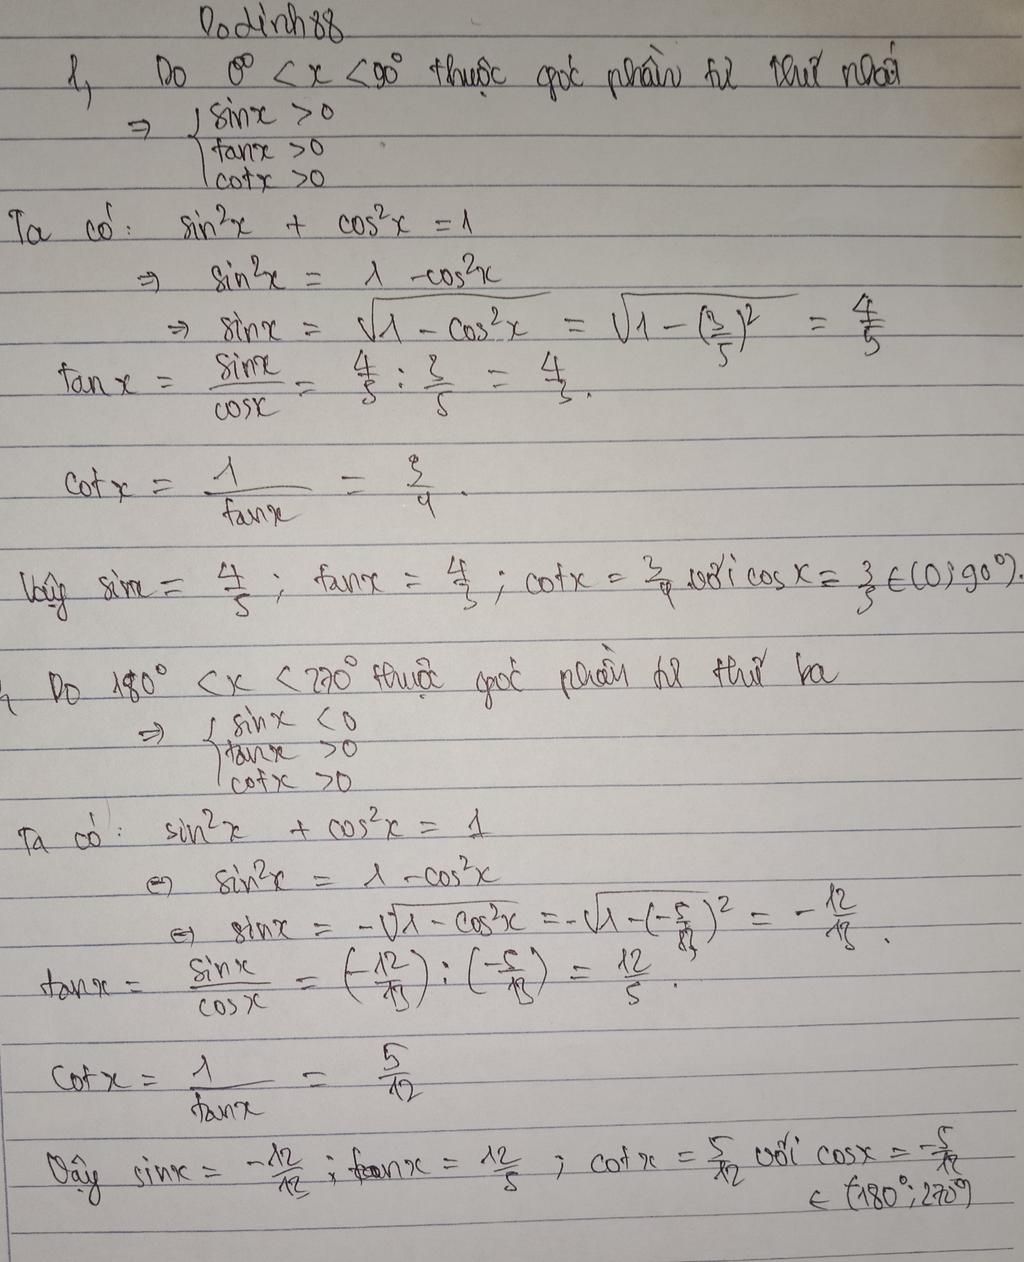 Dodinh88
1, Do 0° < x < 90° thuộc góc phần tư thứ nhất
⇒ { sinx > 0
tanx > 0
cotx > 0
Ta có: sin²x + cos²x = 1
⇒ sin²x = 1 - cos²x
⇒ sinx = √(1 - cos²x) = √(1 - (3/5)²) = 4/5
tanx = sinx/cosx = 4/5 : 3/5 = 4/3.
cotx = 1/tanx = 3/4.
Vậy sinx = 4/5 ; tanx = 4/3 ; cotx = 3/4 với cosx = 3/5 ∈ (0;90°).
Do 180° < x < 270° thuộc góc phần tư thứ ba
⇒ { sinx < 0
tanx > 0
cotx > 0
Ta có: sin²x + cos²x = 1
⇔ sin²x = 1 - cos²x
⇔ sinx = -√(1 - cos²x) = -√(1 - (-5/13)²) = -12/13.
tanx = sinx/cosx = (-12/13) : (-5/13) = 12/5.
cotx = 1/tanx = 5/12
Vậy sinx = -12/12 ; tanx = 12/5 ; cotx = 5/12 với cosx = -5/12
∈ (180°;270°)